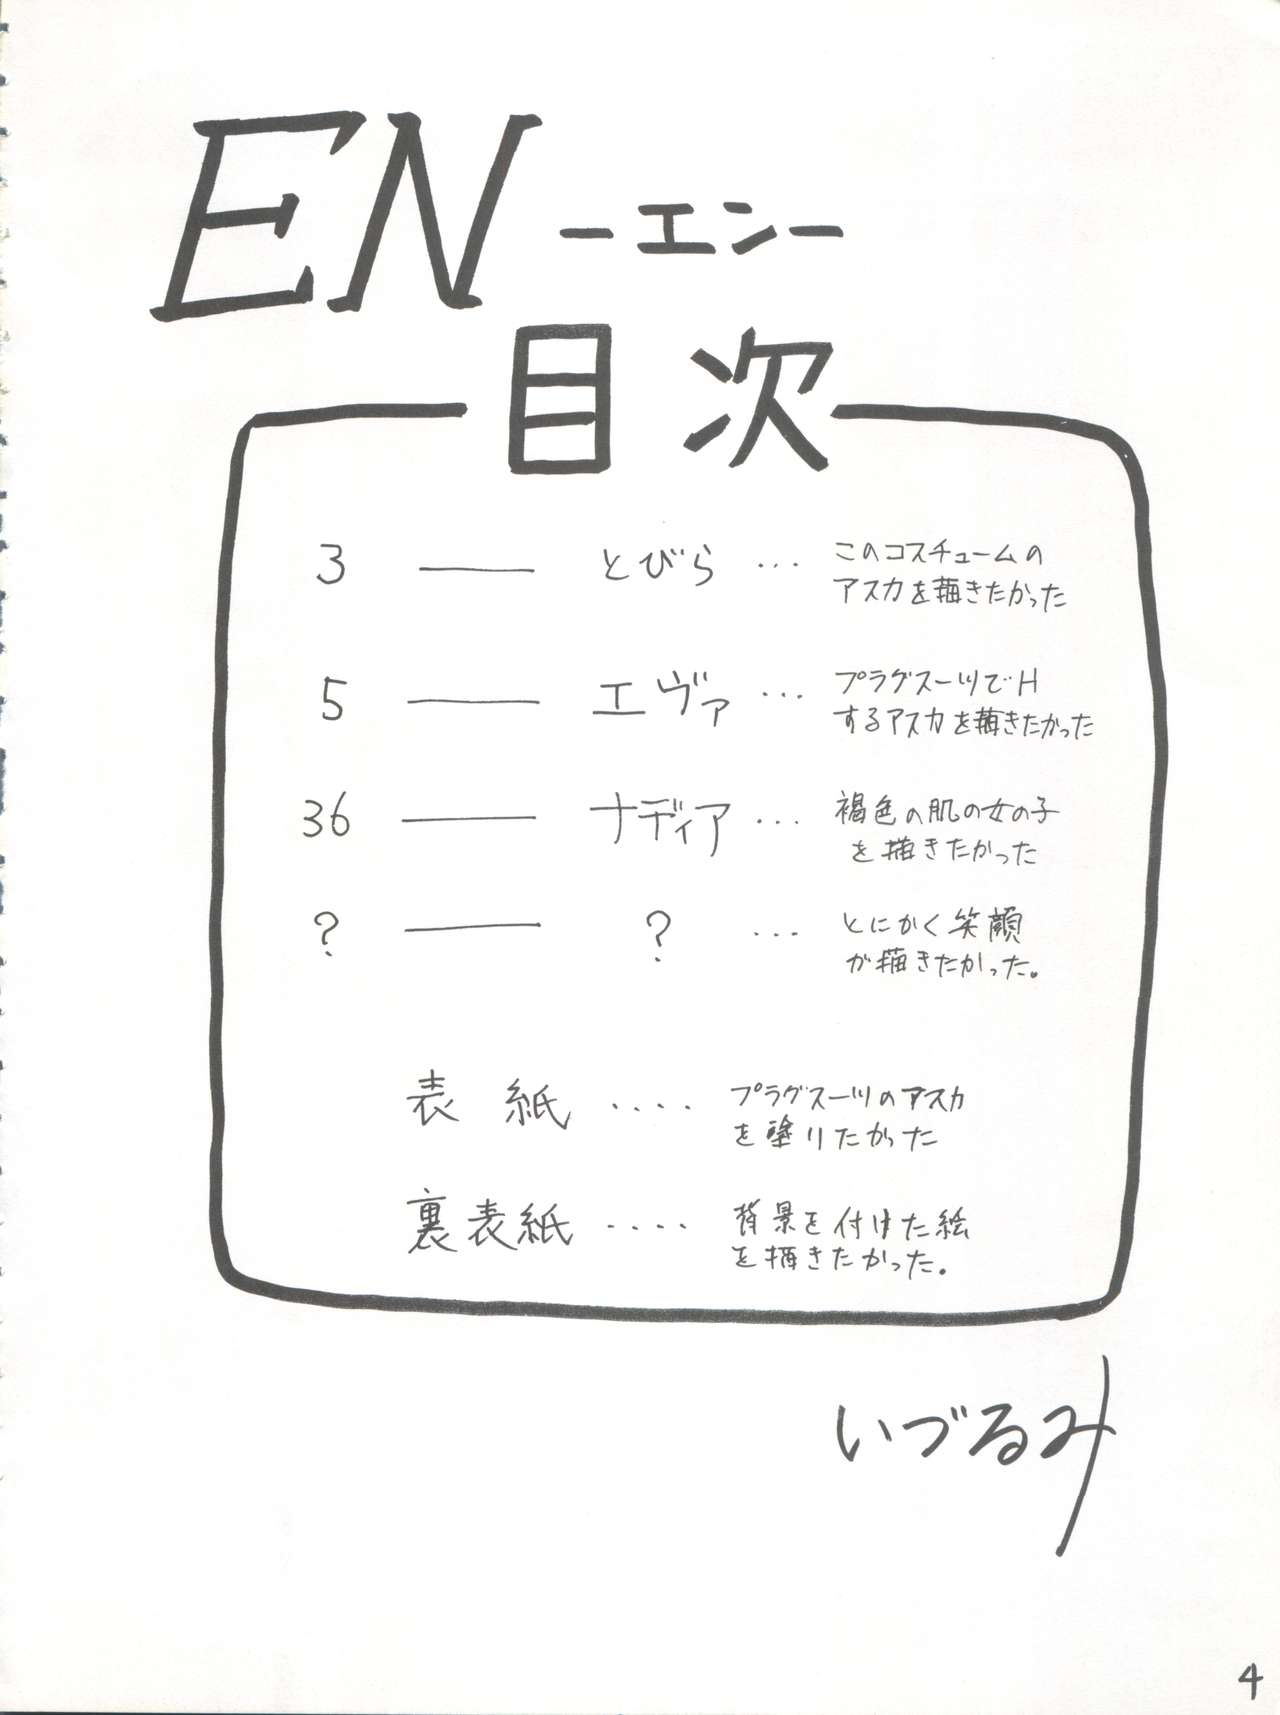 EN -エン-
目次
3 ―― とびら … このコスチュームの
アスカを描きたかった
5 ―― エヴァ … プラグスーツでH
するアスカを描きたかった
36 ―― ナディア … 褐色の肌の女の子
を描きたかった
? ―― ? … とにかく笑顔
が描きたかった。
表紙 …. プラグスーツのアスカ
を塗りたかった
裏表紙 …. 背景を付けた絵
を描きたかった。
いづるみ
4